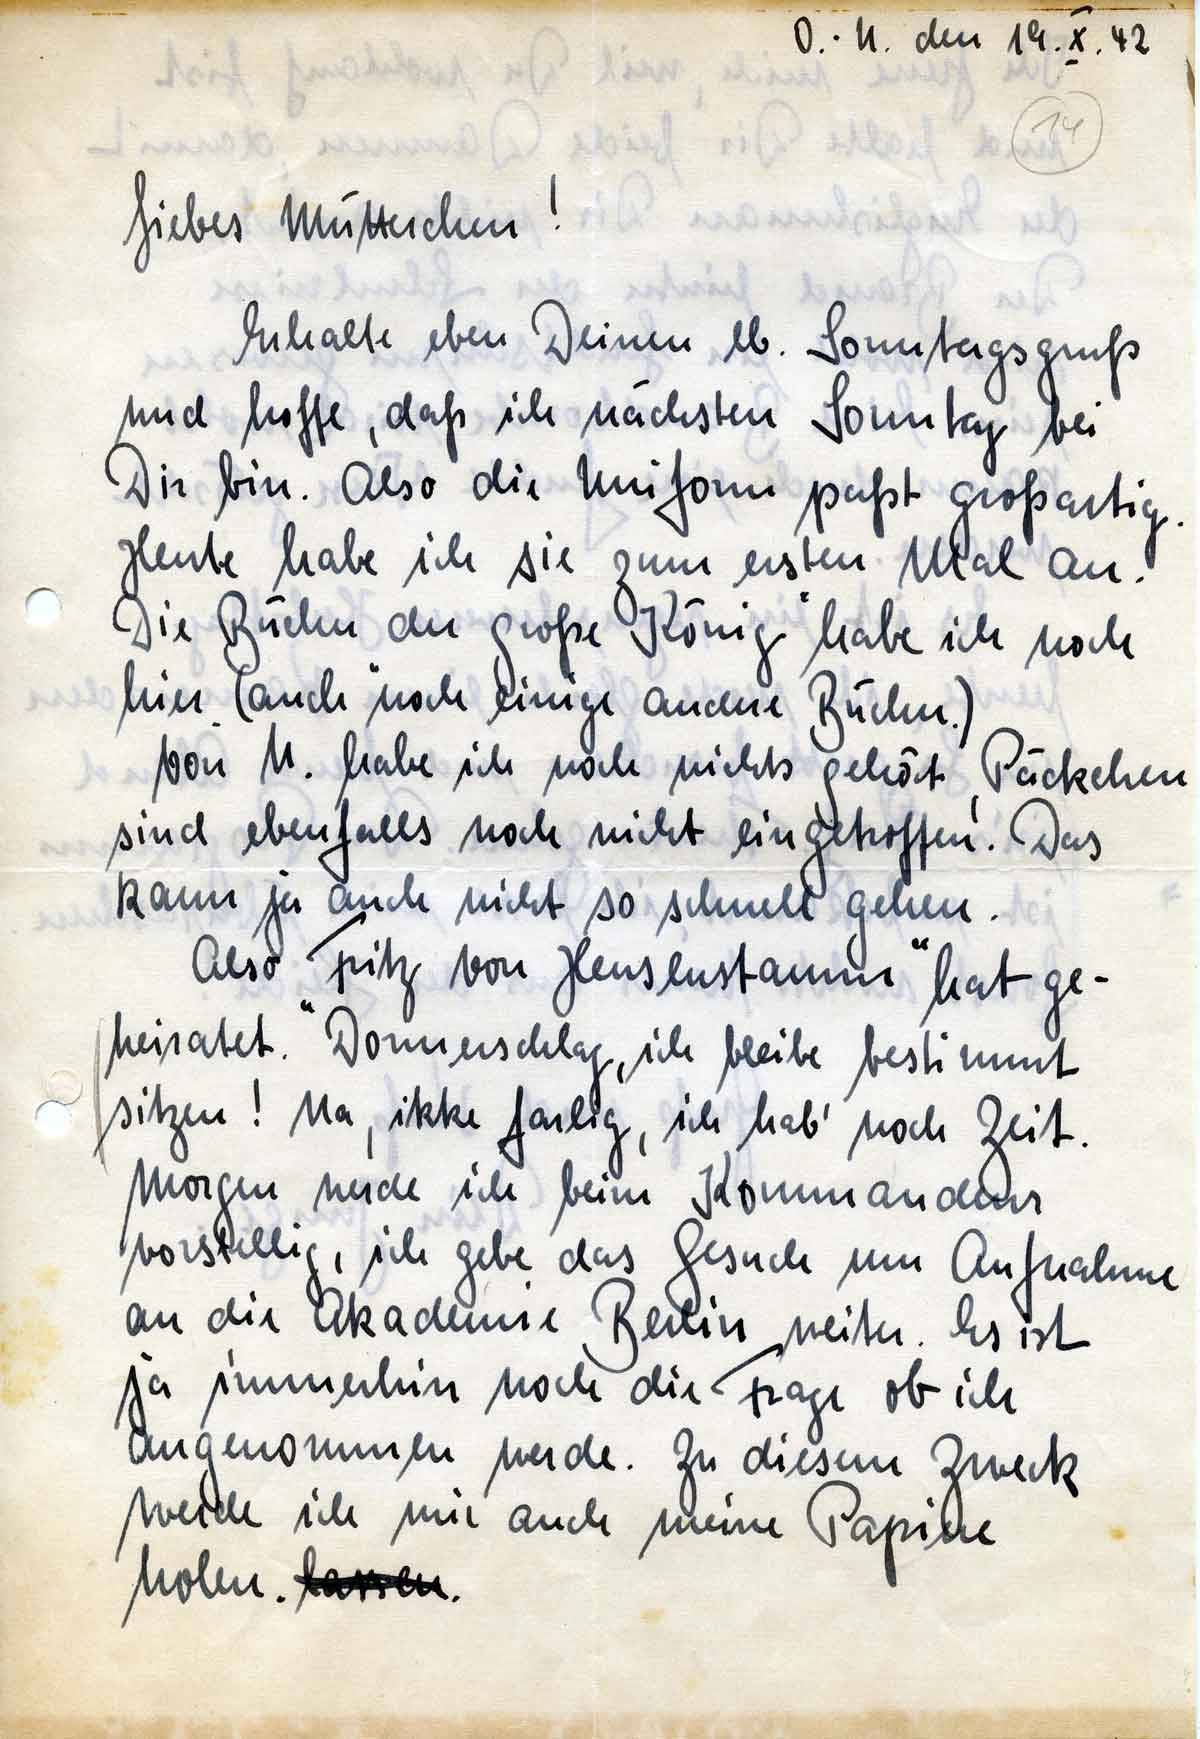 O.-U. den 19.X.42
14
Liebes Mütterchen!
Erhalte eben Deinen lb. Sonntagsgruß
und hoffe, daß ich nächsten Sonntag bei
Dir bin. Also die Uniform paßt großartig.
Heute habe ich sie zum ersten Mal an.
Die Bücher der große "König" habe ich noch
hier. (auch noch einige andere Bücher.)
Von U. habe ich noch nichts gehört, Päckchen
sind ebenfalls noch nicht eingetroffen. Das
kann ja auch nicht so schnell gehen.
Also "Fritz von Heusenstamm" hat ge-
heiratet. Donnerschlag, ich bleibe bestimmt
sitzen! Na, ikke farlig, ich hab' noch Zeit.
Morgen werde ich beim Kommandeur
vorstellig, ich gebe das Gesuch um Aufnahme
an die Akademie Berlin weiter. Es ist
ja immerhin noch die Frage ob ich
angenommen werde. Zu diesem Zweck
werde ich mir auch meine Papiere
holen. lassen.